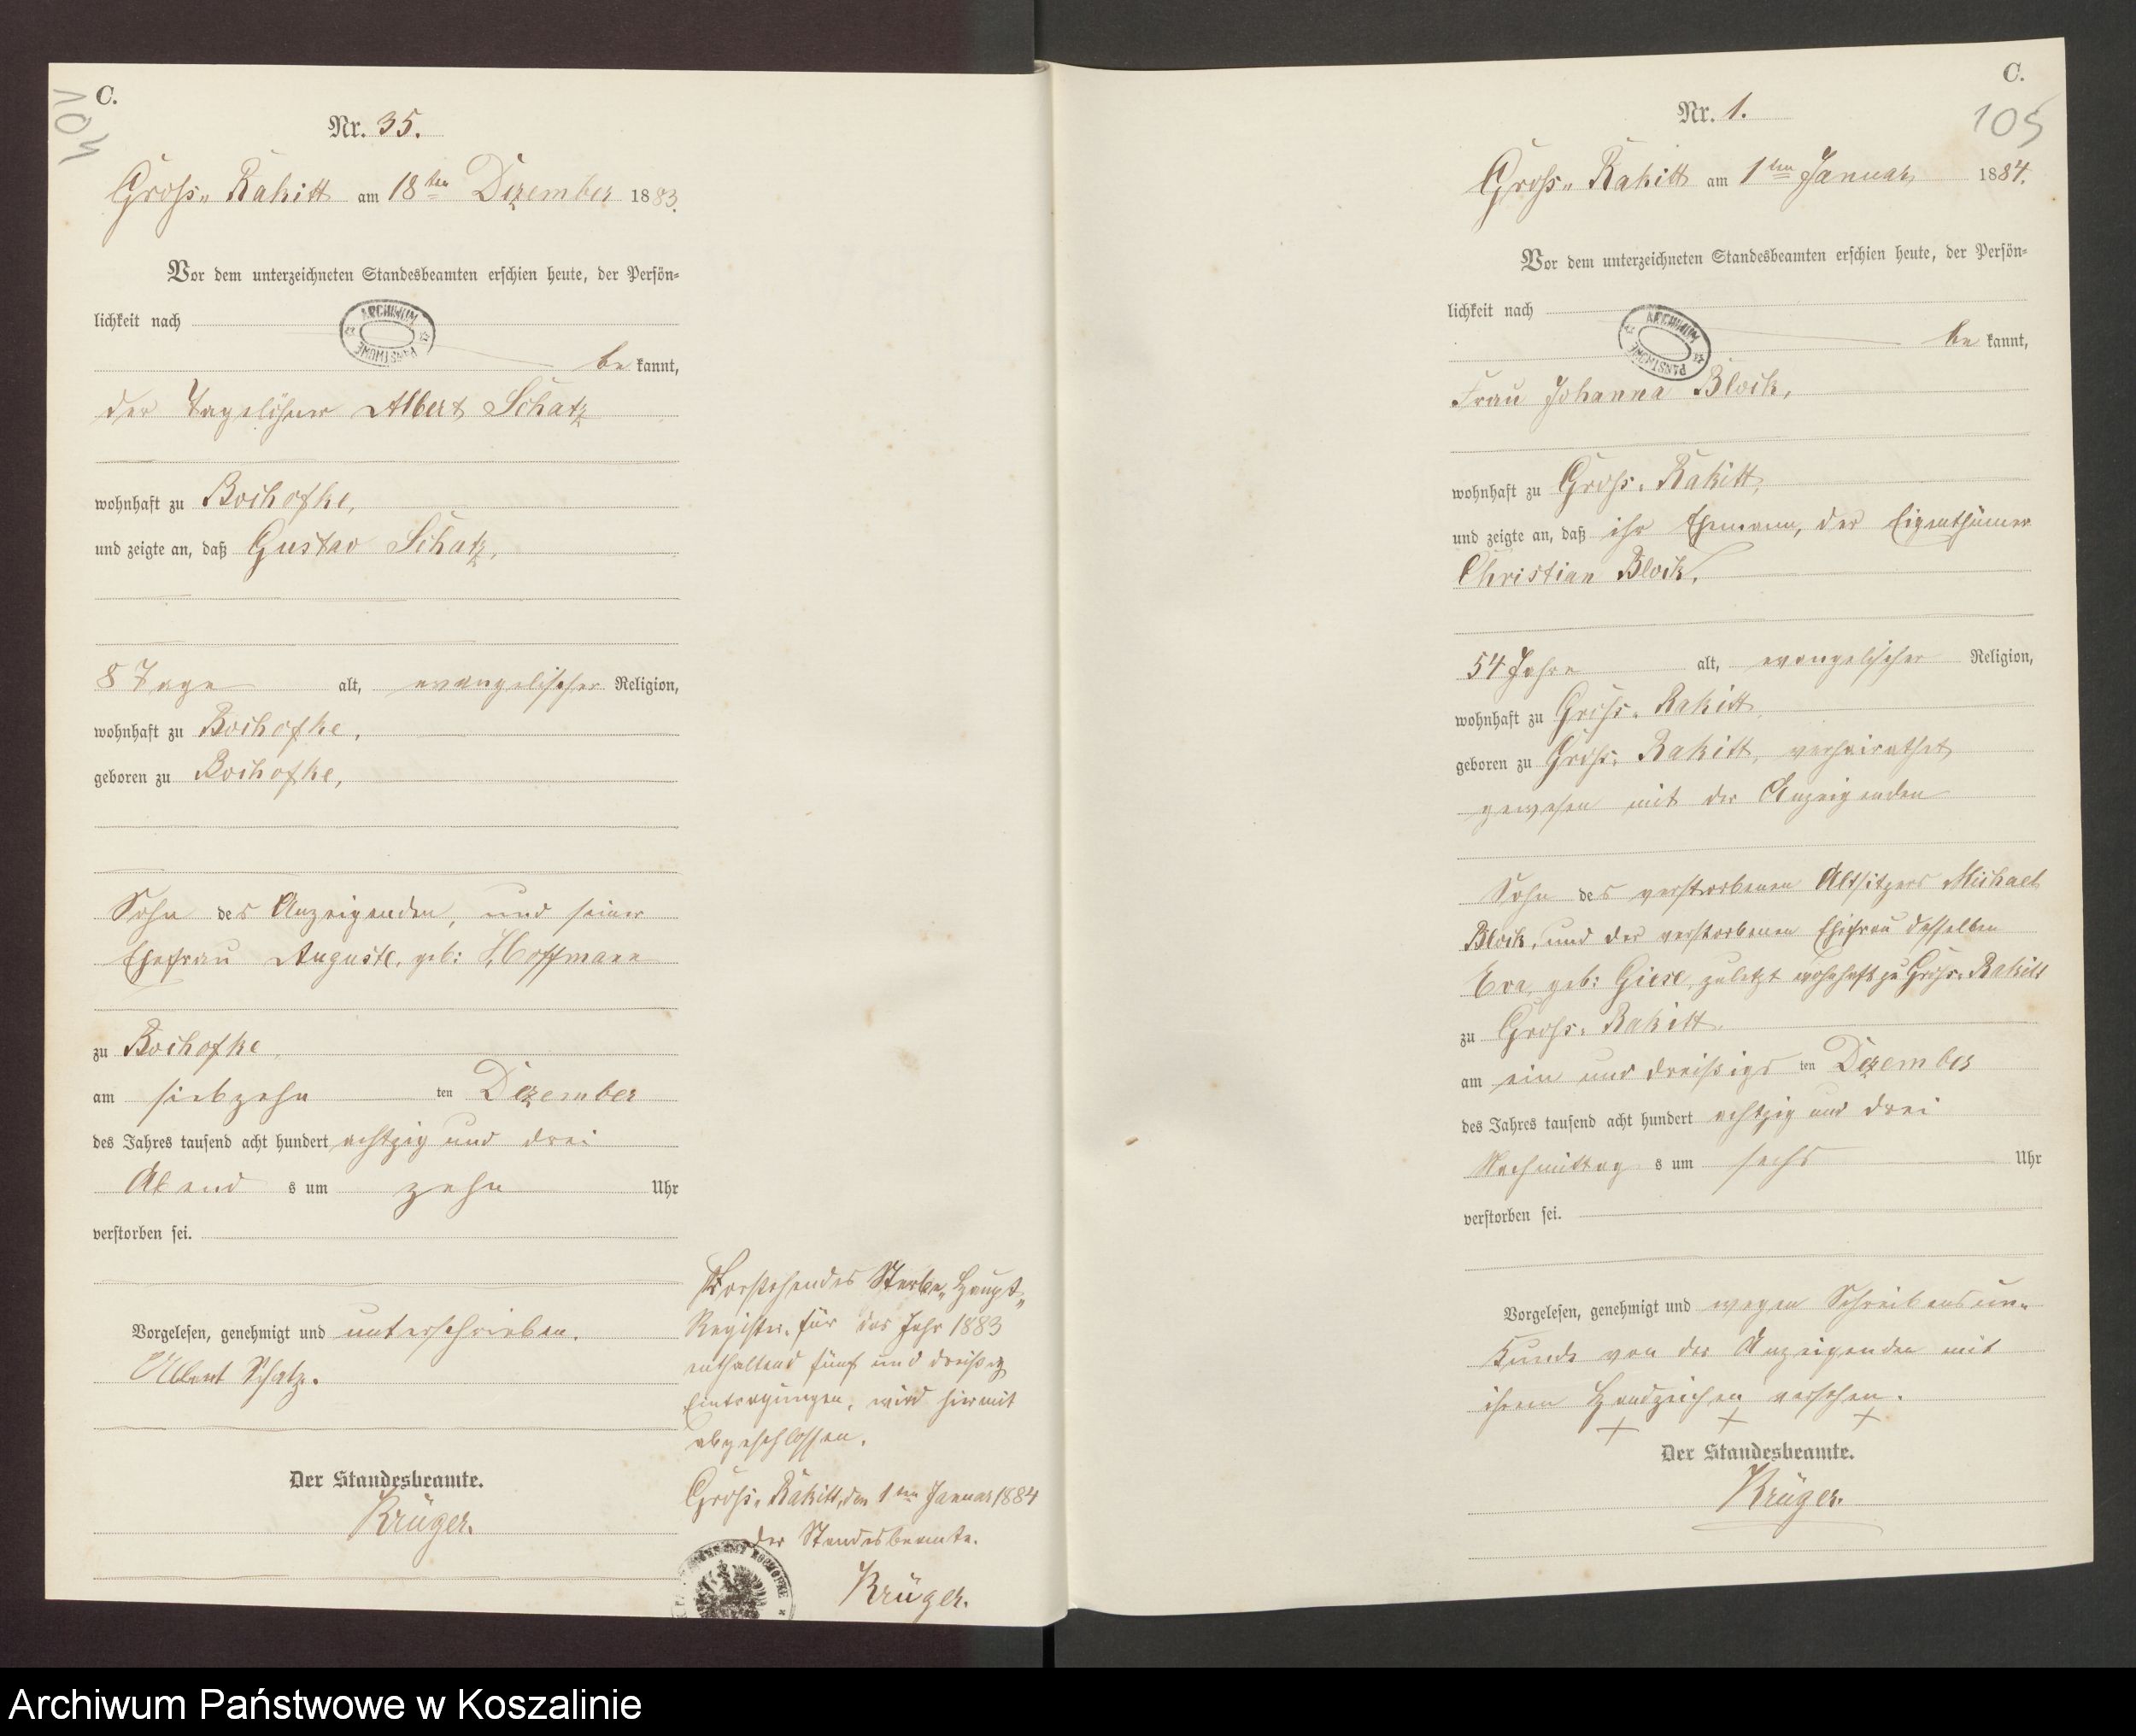 C.
104
Nr. 35.
Gross„ Rakitt am 18ten Dezember 1883.
Vor dem unterzeichneten Standesbeamten erschien heute, der Persön-
lichkeit nach
ARCHIWUM PAŃSTWOWE
be kannt,
der Tagelöhner Albert Schatz
wohnhaft zu Bochofke,
und zeigte an, daß Gustav Schatz,
8 Tage alt, evangelischer Religion,
wohnhaft zu Bochofke,
geboren zu Bochofke,
Sohn des Anzeigenden, und seiner
Ehefrau Auguste, geb: Hoffmann
zu Bochofke,
am siebzehn ten Dezember
des Jahres tausend acht hundert achtzig und drei
Abend s um zehn Uhr
verstorben sei.
Vorgelesen, genehmigt und unterschrieben.
Albert Schatz.
Der Standesbeamte.
Krüger.
Vorstehendes Sterbe„ Haupt„
Register, für das Jahr 1883
enthaltend fünf und dreißig
Eintragungen, wird hiermit
abgeschlossen.
Gross„ Rakitt, den 1ten Januar 1884
der Standesbeamte.
Krüger.
C.
105
Nr. 1.
Gross„ Rakitt am 1ten Januar 1884.
Vor dem unterzeichneten Standesbeamten erschien heute, der Persön-
lichkeit nach
ARCHIWUM PAŃSTWOWE
be kannt,
Frau Johanna Block,
wohnhaft zu Gross„ Rakitt,
und zeigte an, daß ihr Ehemann, der Eigenthümer
Christian Block,
54 Jahre alt, evangelischer Religion,
wohnhaft zu Gross„ Rakitt,
geboren zu Gross„ Rakitt, verheirathet
gewesen mit der Anzeigenden
Sohn des verstorbenen Altsitzers Michael
Block, und der verstorbenen Ehefrau desselben
Eva, geb: Giese, zuletzt wohnhaft zu Gross„ Rakitt
zu Gross„ Rakitt,
am ein und dreißigs ten Dezember
des Jahres tausend acht hundert achtzig und drei
Nachmittag s um sechs Uhr
verstorben sei.
Vorgelesen, genehmigt und wegen Schreibensun„
kunde von der Anzeigenden mit
ihrem Handzeichen versehen.
+ + +
Der Standesbeamte.
Krüger.
Archiwum Państwowe w Koszalinie